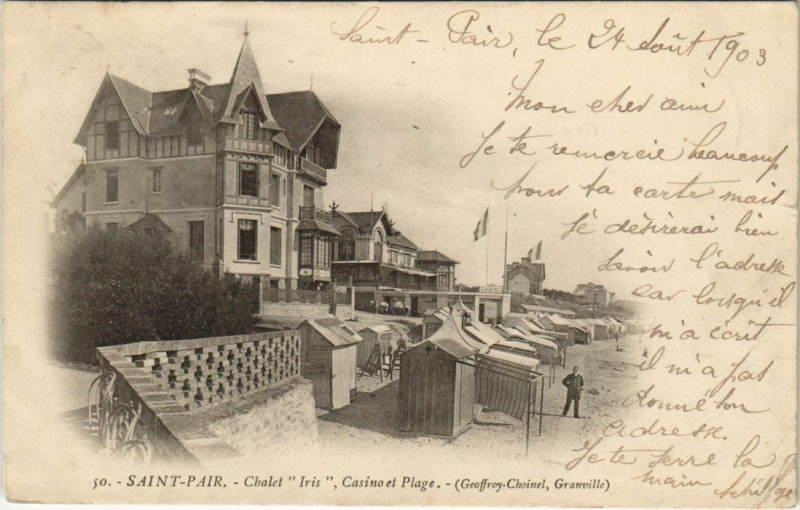 Saint-Pair, le 24 Août 1903
Mon cher ami
Je te remercie beaucoup
pour ta carte mais
Je désirerai bien
savoir l'adresse
car lorsqu'il
m'a écrit
il m'a pas
donné son
adresse.
Je te serre la
main
50. - SAINT-PAIR. - Chalet "Iris", Casino et Plage. - (Geoffroy-Choinel, Granville)